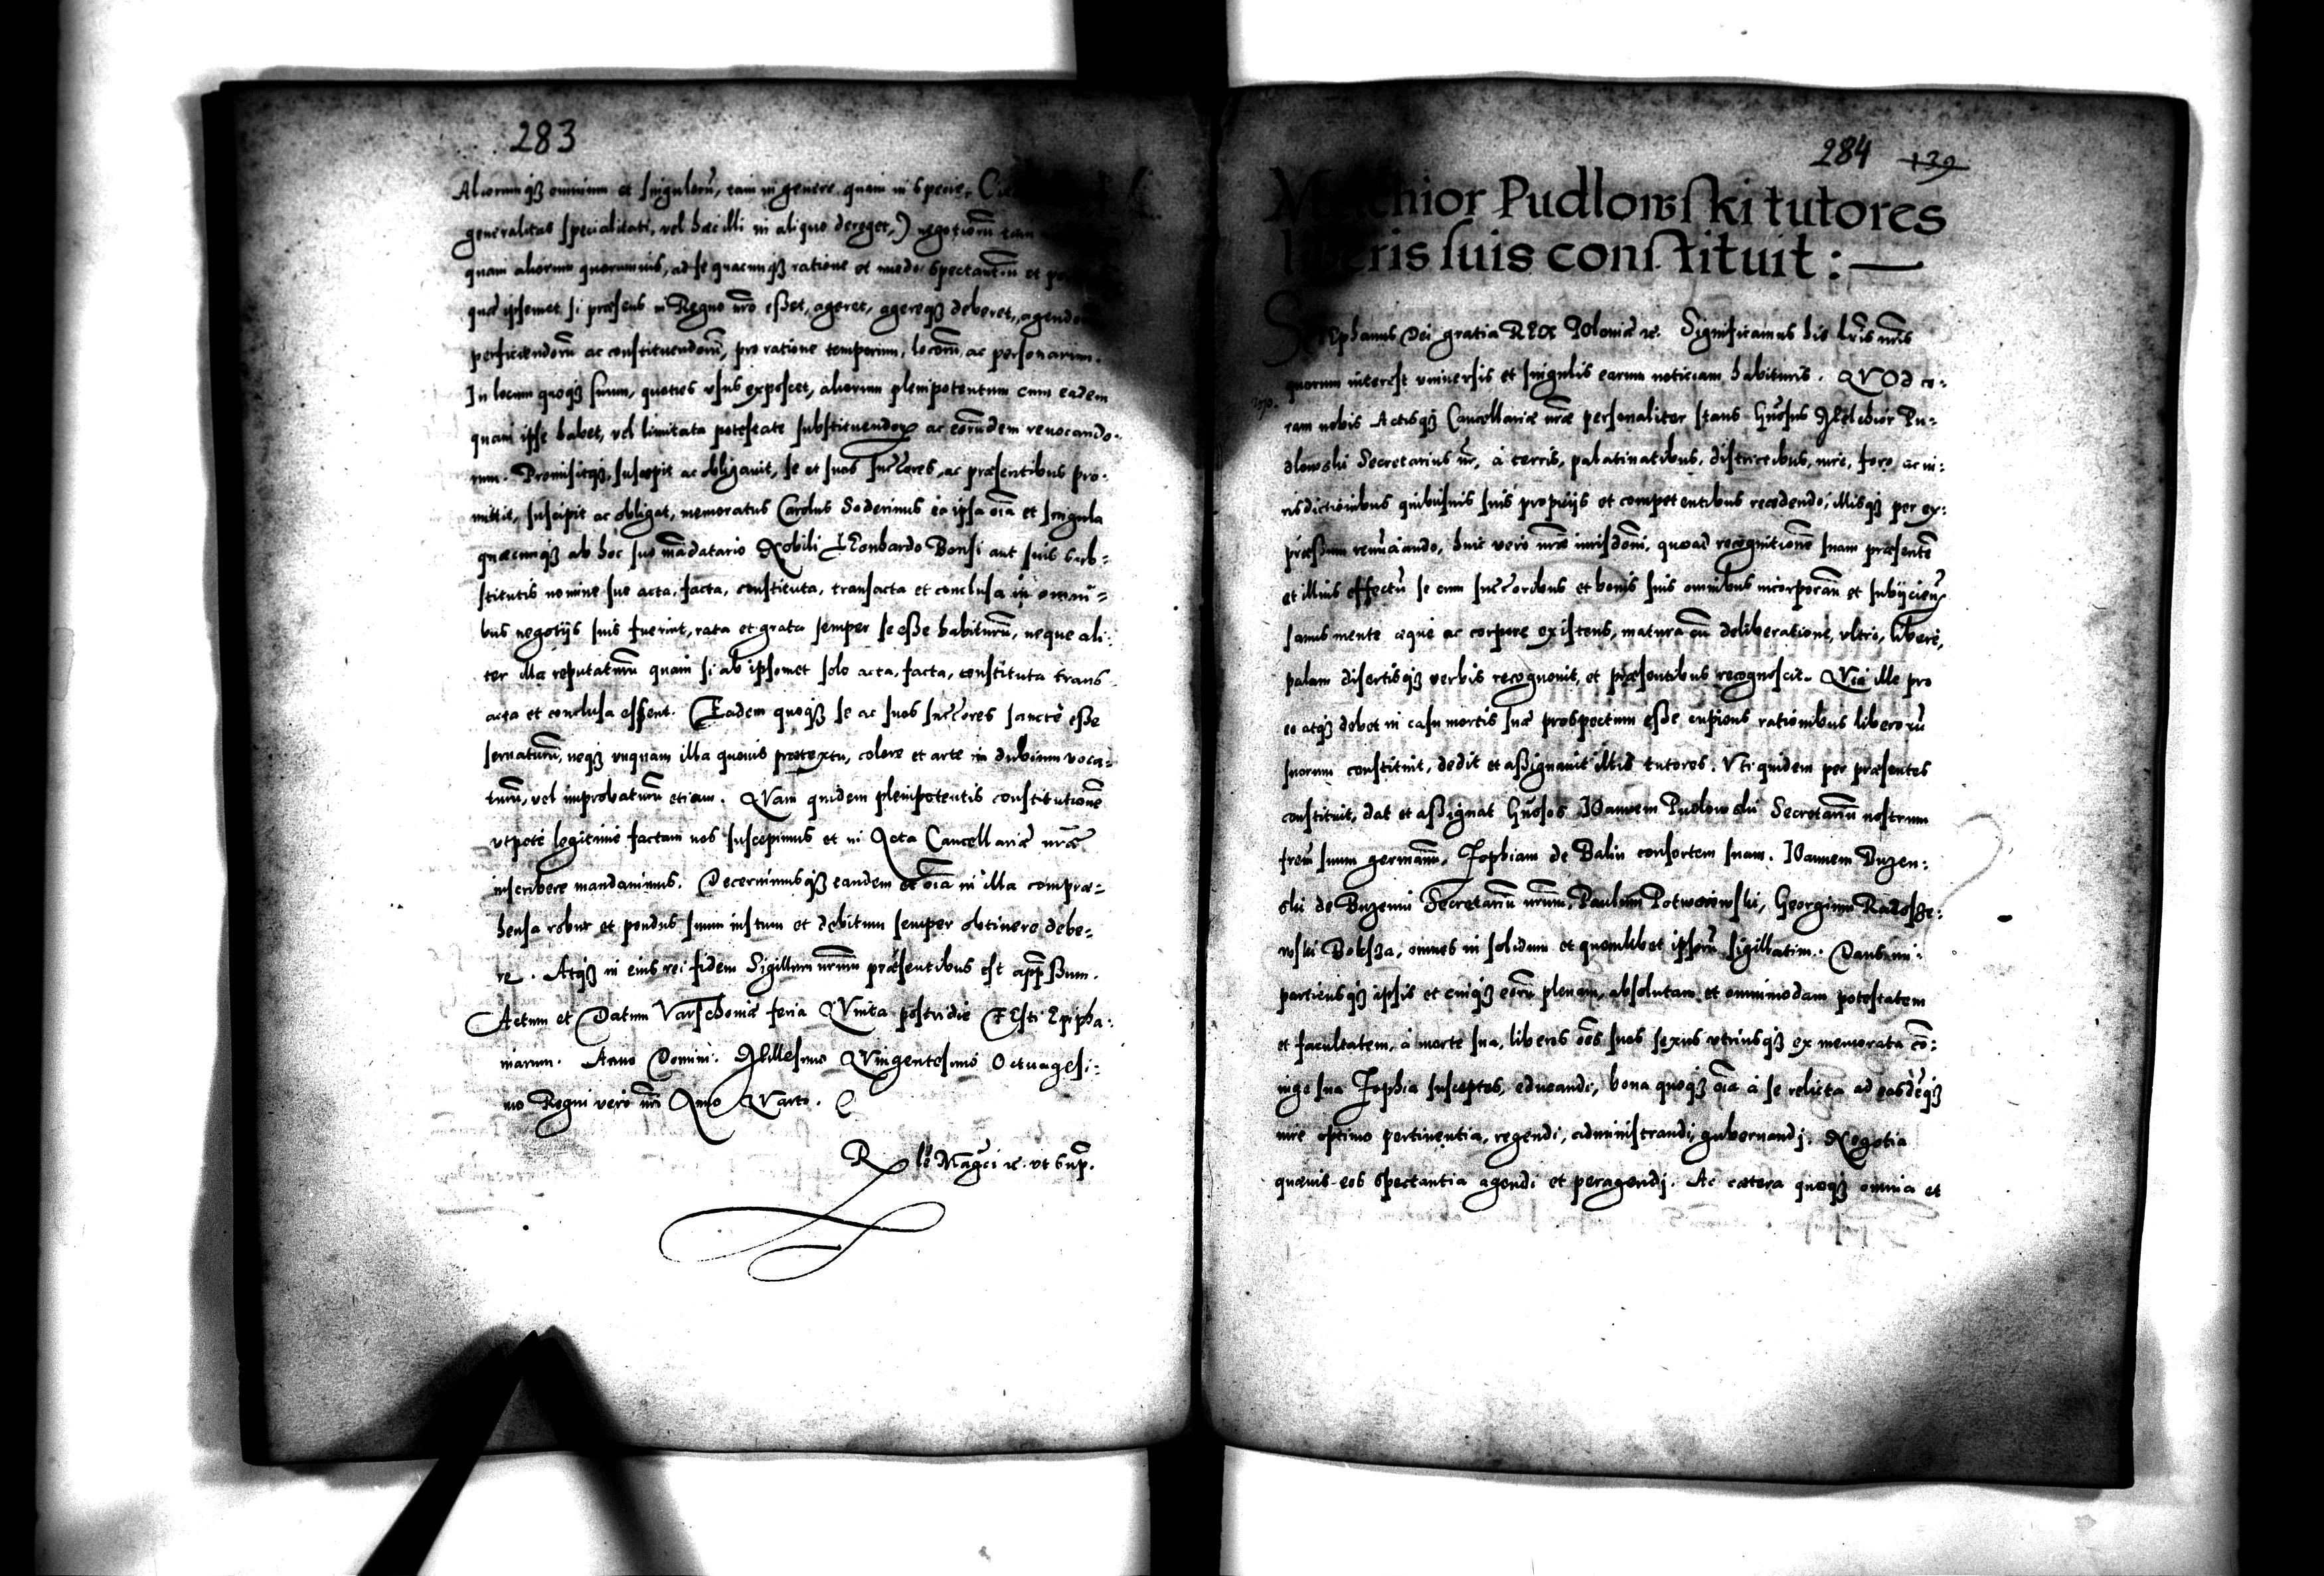 283
Aliorumq3 omnium et singulorũ, tam in genere quam in specie,
generalitas specialitati, vel haec illi in aliquo dereget,) negotiorũ tam
quam aliorum quorumuis, ad se quacunq3 ratione et modo spectantiũ et
quae ipsemet si praesens in Regno nr̃o esset, ageret, agereq3 deberet,
perficiendorũ ac constituendorũ, pro ratione temporum, locorũ, ac personarum.
In locum quoq3 suum, quoties vsus exposcet, aliorum plenipotentum cum eadem
quam ipse habet, vel limitata potestate substituendorʒ ac eorũdem reuocando-
rum. Promisitq3, suscepit ac obligauit, se et suos succ̃ores, ac praesentibus pro-
mittit, suscipit ac obligat, memoratus Carolus Soderinus ea ipsa oĩa et singula
quaecunq3 ab hoc suo mãdatario Nobili LEonhardo Bonsi aut suis sub-
stitutis nomine suo acta, facta, constituta, transacta et conclusa in omni-
bus negotijs suis fuerint, rata et grata semper se esse habiturũ, neque ali-
ter illa reputaturũ quam si ab ipsomet solo acta, facta, constituta trans
acta et conclusa essent. Eadem quoq3 se ac suos succ̃ores sanctè esse
seruaturũ, neq3 vnquam illa quouis praetextu, colore et arte in dubium voca-
turũ, vel improbaturũ etiam. QVam quidem plenipotentis constitutionẽ
vtpote legitimè factam nos suscepimus et in Acta Cancellariae nr̃ae
inscribere mandauimus. Decernimusq3 eandem et oĩa in illa comprae-
hensa robur et pondus suum iustum et debitum semper obtinere debe-
re. Atq3 in eius rei fidem Sigillum nr̃um praesentibus est app̃ssum.
Actum et Datum Varschouiae feria QVinta postridie FEsti Epipha-
niarum. Anno Domini. Millesimo QVingentesimo Octuagesi-
mo Regni vero nr̃i Anno QVarto.
Rel̃o Mag̃ci &c. vt sup̃.
284 139
Melchior Pudlowski tutores
liberis suis constituit : —
StEphanus Dei gratia REx Poloniae &c. Significamus his lr̃is nr̃is
quorum interest vniuersis et singulis earum noticiam habituris. QVOd co-
ram nobis Actisq3 Cancellariae nr̃ae personaliter stans Gñosus MElchior Pu-
dlowski Secretarius nr̃, à terris, palatinatibus, districtibus, iure, foro ac iu-
risdictionibus quibusuis suis proprijs et competentibus recedendo, illisq3 per ex-
praessum renũciando, huic vero nr̃ae iurisdõni, quoad recognitionẽ suam praesentẽ
et illius effectũ se cum succ̃oribus et bonis suis omnibus incorporañ et subijcieñ
sanus mente aeque ac corpore existens, matura cũ deliberatione, vltrò, liberè,
palam disertisq3 verbis recognouit, et praesentibus recognoscit. QVia ille pro
eo atq3 debet in casu mortis suae prospectum esse cupiens rationibus liberorũ
suorum constituit, dedit et assignauit illis tutores. Vti quidem per praesentes
constituit, dat et assignat Gñosos IOannem Pudlowski Secretariũ nostrum
frẽm suum germanũ, Zophiam de Balin consortem suam. IOannem Buzen-
ski de Buzenin Secretariũ nr̃um, Paulum Potworowski, Georgium Radosze-
wski Boksza, omnes in solidum et quemlibet ipsorũ sigillatim. Dans im-
partiensq3 ipsis et cuiq3 eorũ plenam, absolutam et omnimodam potestatem
et facultatem, à morte sua, liberos oẽs suos sexus vtriusq3 ex memorata cõ-
iuge sua Zophia susceptos, educandi, bona quoq3 oĩa à se relicta ad eosdẽq3
iure optimo pertinentia, regendi, administrandi, gubernandj. Negotia
quaeuis eos spectantia agendi et peragendj. Ac caetera quoq3 omnia et